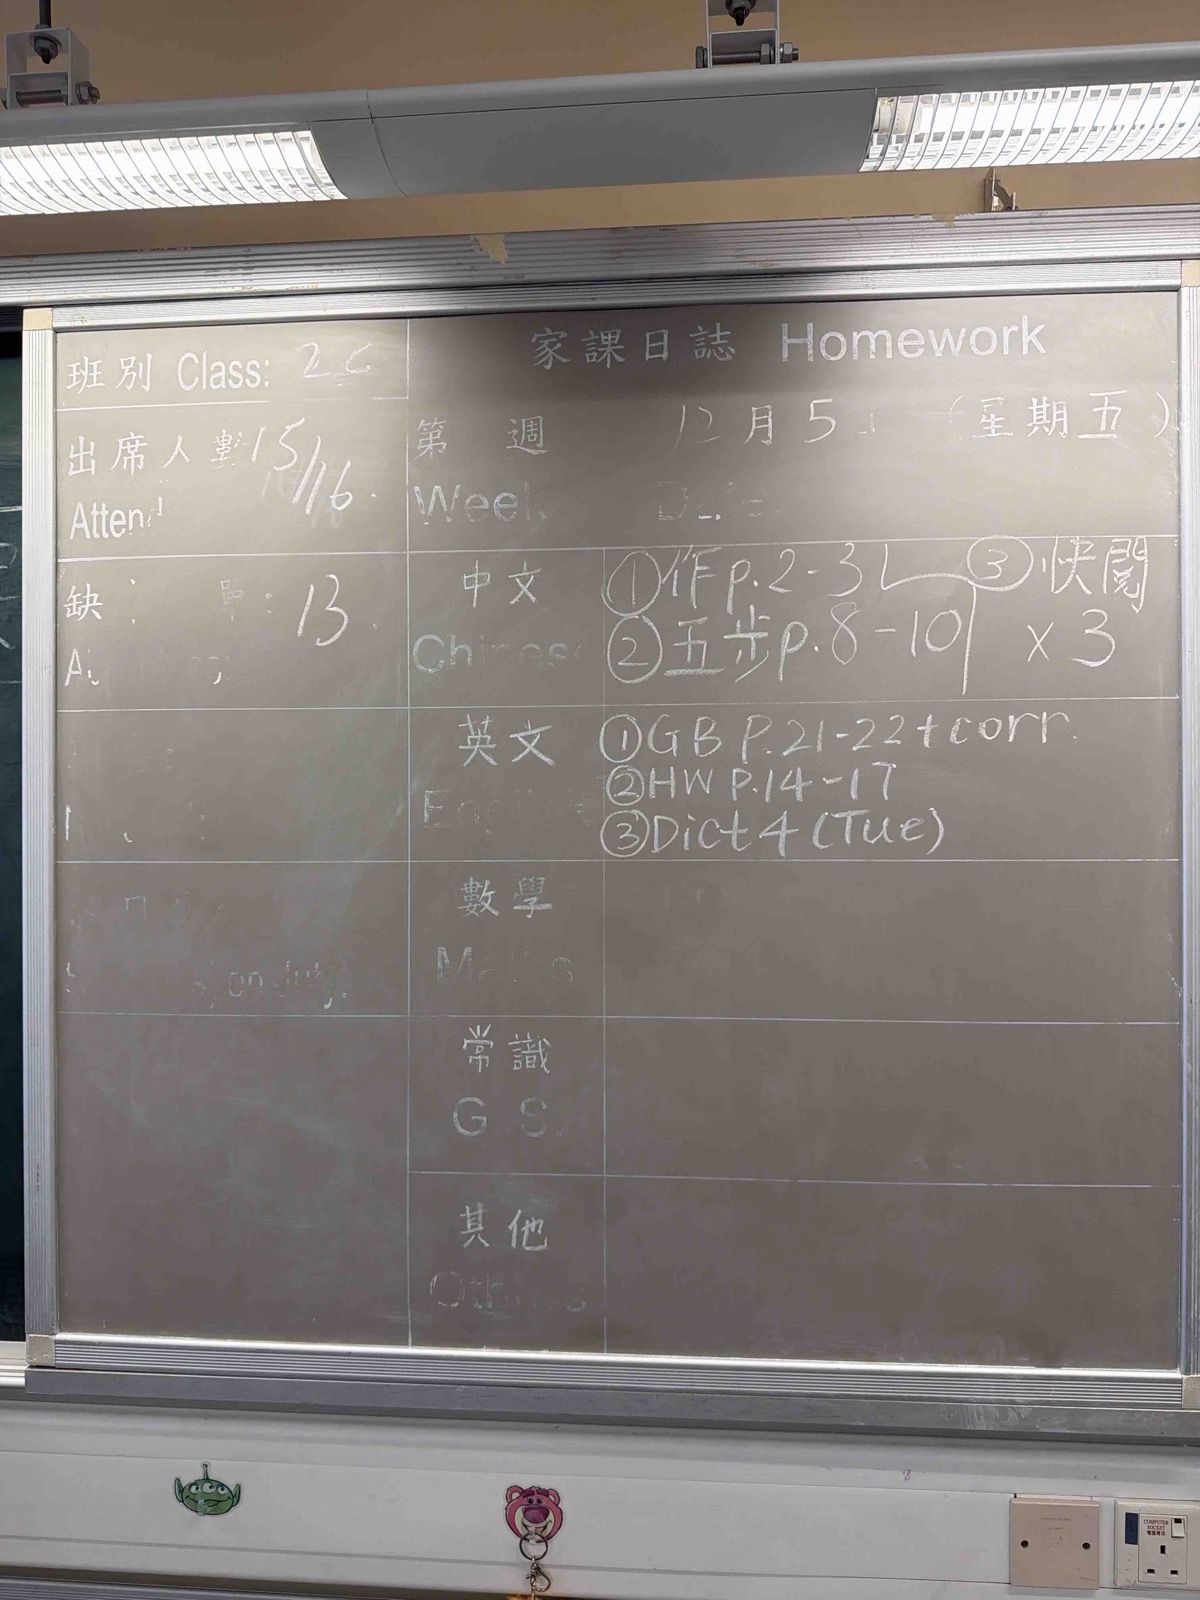 家課日誌 Homework
班別 Class: 2C
出席人數 15/16
第 週 12月5 (星期五)
Week
缺 單: 13
中文
①作p.2-3 ③快閱
②五步p.8-10 x3
英文
①GB P.21-22+corr.
②HW P.14-17
③Dict 4 (Tue)
數學
Maths
常識
G S
其他
Others
COMPUTER
SOCKET
電腦專用